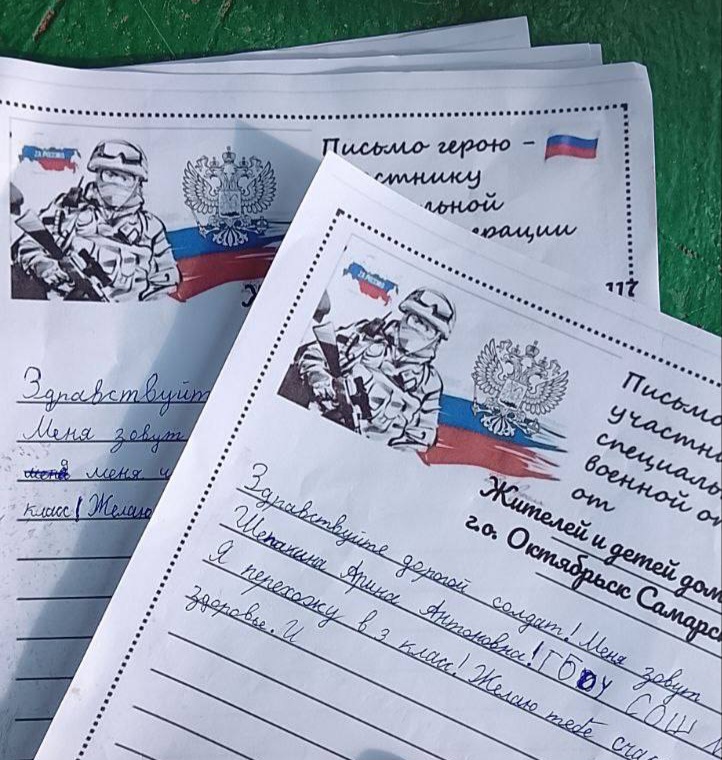 ZA РОССИЮ
Письмо герою –
стнику
льной
ерации
117
Здравствуйт
Меня зовут
меня
класс! Желаю
ZA РОССИЮ
Письмо
участни
специаль
военной оп
от
Жителей и детей дом
г.о. Октябрьск Самарс
Здравствуйте дорогой солдат! Меня зовут
Щепанина Арина Антоновна! ГБОУ СОШ №
Я перехожу в 3 класс! Желаю тебе счас
здоровье. И